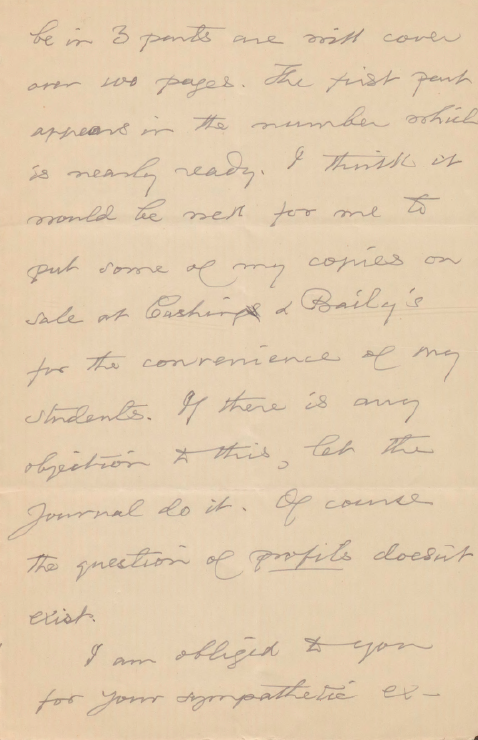 be in 3 parts and will cover
over 100 pages. The first part
appears in the number which
is nearly ready. I think it
would be well for me to
put some of my copies on
sale at Cushings & Baily's
for the convenience of my
students. If there is any
objection to this, let the
Journal do it. Of course
the question of profits doesn't
exist.
I am obliged to you
for your sympathetic ex-